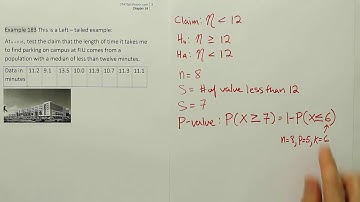 Chapter 14
Example 183 This is a Left – tailed example:
test the claim that the length of time it takes me
to find parking on campus at FIU comes from a
population with a median of less than twelve minutes.
Data in 11.2 9.1 13.5 10.0 11.9 10.7 11.3 11.1
minutes
Claim: η < 12
H₀: η ≥ 12
Ha: η < 12
n = 8
S = # of value less than 12
S = 7
P-value: P(X ≥ 7) = 1-P(X≤6)
n=8, p=.5, x=6